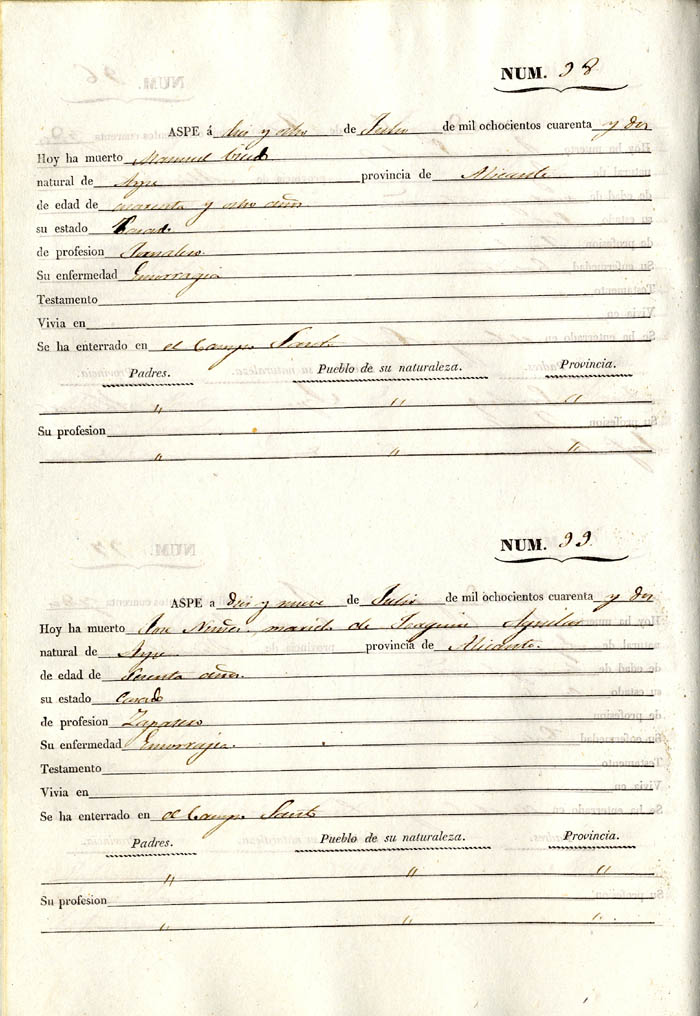 NUM. 98
ASPE á diez y ocho de Julio de mil ochocientos cuarenta y dos
Hoy ha muerto Manuel
natural de Aspe provincia de Alicante
de edad de cuarenta y ocho años
su estado Casado
de profesion Jornalero
Su enfermedad Emorragia
Testamento
Vivia en
Se ha enterrado en el Campo Santo
Padres. Pueblo de su naturaleza. Provincia.
" " "
Su profesion
" " "
NUM. 99
ASPE a diez y nueve de Julio de mil ochocientos cuarenta y dos
Hoy ha muerto Jose Nuñez, marido de Joaquina Aguilar
natural de Aspe provincia de Alicante.
de edad de años.
su estado casado
de profesion Zapatero
Su enfermedad Emorrajia.
Testamento
Vivia en
Se ha enterrado en el Campo Santo
Padres. Pueblo de su naturaleza. Provincia.
" " "
Su profesion
" " "